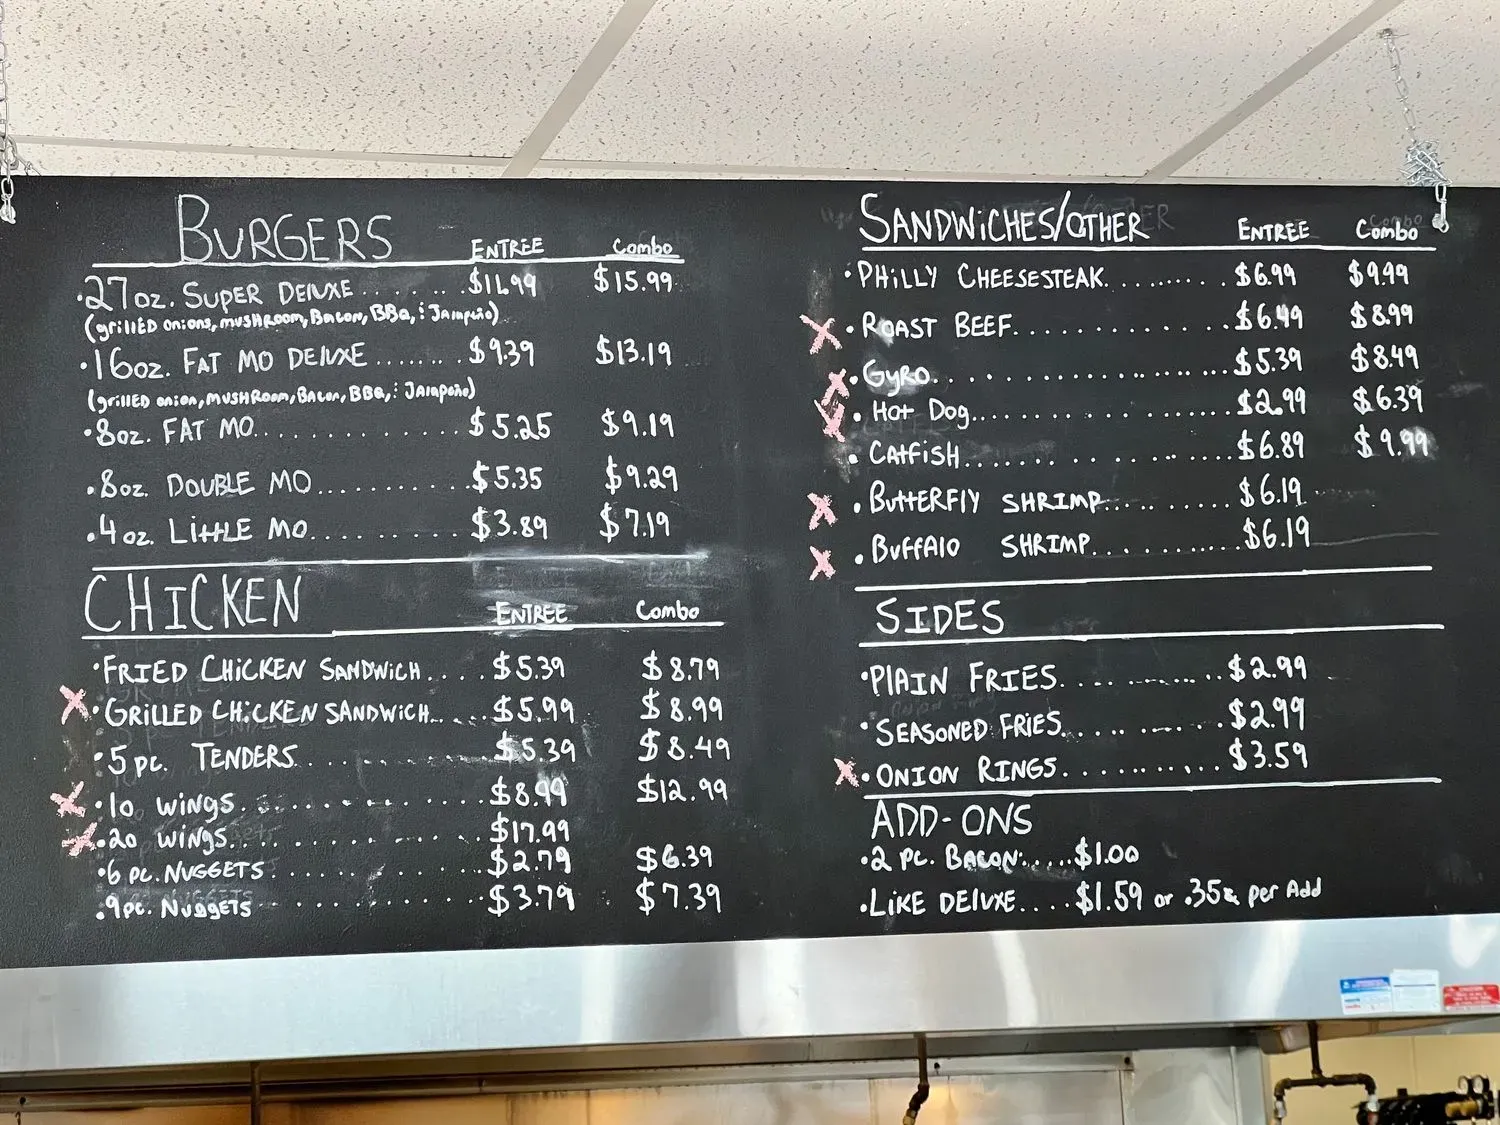 BURGERS ENTREE Combo
·27oz. SUPER DElUXE ........ $11.99 $15.99
(grillED onions, mUSHROOM, BACON, BBQ, & JAlApeño)
·16oz. FAT MO DElUXE ....... $9.39 $13.19
(grillED onion, mUSHROOM, BACON, BBQ, & JAlApeño)
·8oz. FAT MO............. $5.25 $9.19
·8oz. DOUBLE MO............ $5.35 $9.29
·4oz. LiTTLE MO............ $3.89 $7.19
CHICKEN ENTREE Combo
·FRIED CHiCKEN SANDWiCH.... $5.39 $8.79
X ·GRiLLED CHiCKEN SANDWiCH...... $5.99 $8.99
·5 pc. TENDERS............ $5.39 $8.49
X ·10 WiNgS.............. $8.99 $12.99
X ·20 WiNgS.............. $17.99
·6 pc. NUGGETS............ $2.79 $6.39
·9pc. NuggETS............. $3.79 $7.39
SANDWiCHES/OTHER ENTREE Combo
·PHiLLY CHEESESTEAK.......... $6.99 $9.49
X ·ROAST BEEF.............. $6.49 $8.99
X ·GyRO................... $5.39 $8.49
X ·HOT DOg................ $2.99 $6.39
·CATfiSH................ $6.89 $9.99
X ·BUTTERFlY SHRIMP.......... $6.19
X ·BuffAlO SHRIMP........... $6.19
SIDES
·PlAIN FRIES............. $2.99
·SEASONED FRiES........... $2.99
X ·ONION RINGS............. $3.59
ADD-ONS
·2 PC. BACON..... $1.00
·LiKE DElUXE.... $1.59 or .35¢ per Add